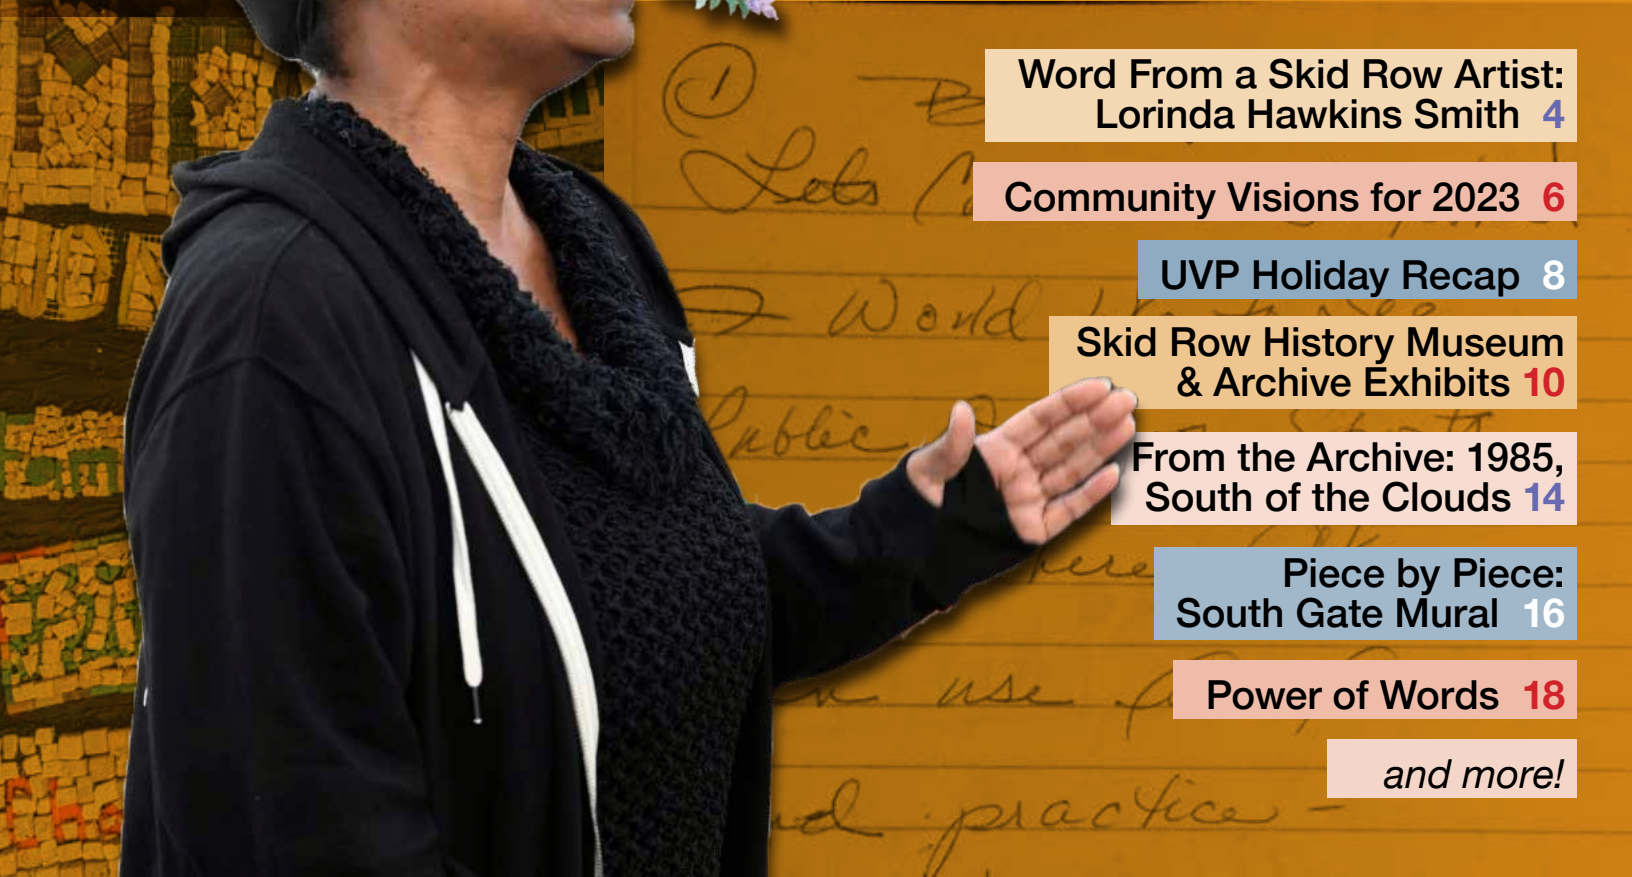 Word From a Skid Row Artist:
Lorinda Hawkins Smith 4
Community Visions for 2023 6
UVP Holiday Recap 8
Skid Row History Museum
& Archive Exhibits 10
From the Archive: 1985,
South of the Clouds 14
Piece by Piece:
South Gate Mural 16
Power of Words 18
and more!
1
Lets
World
Public
use
practice -